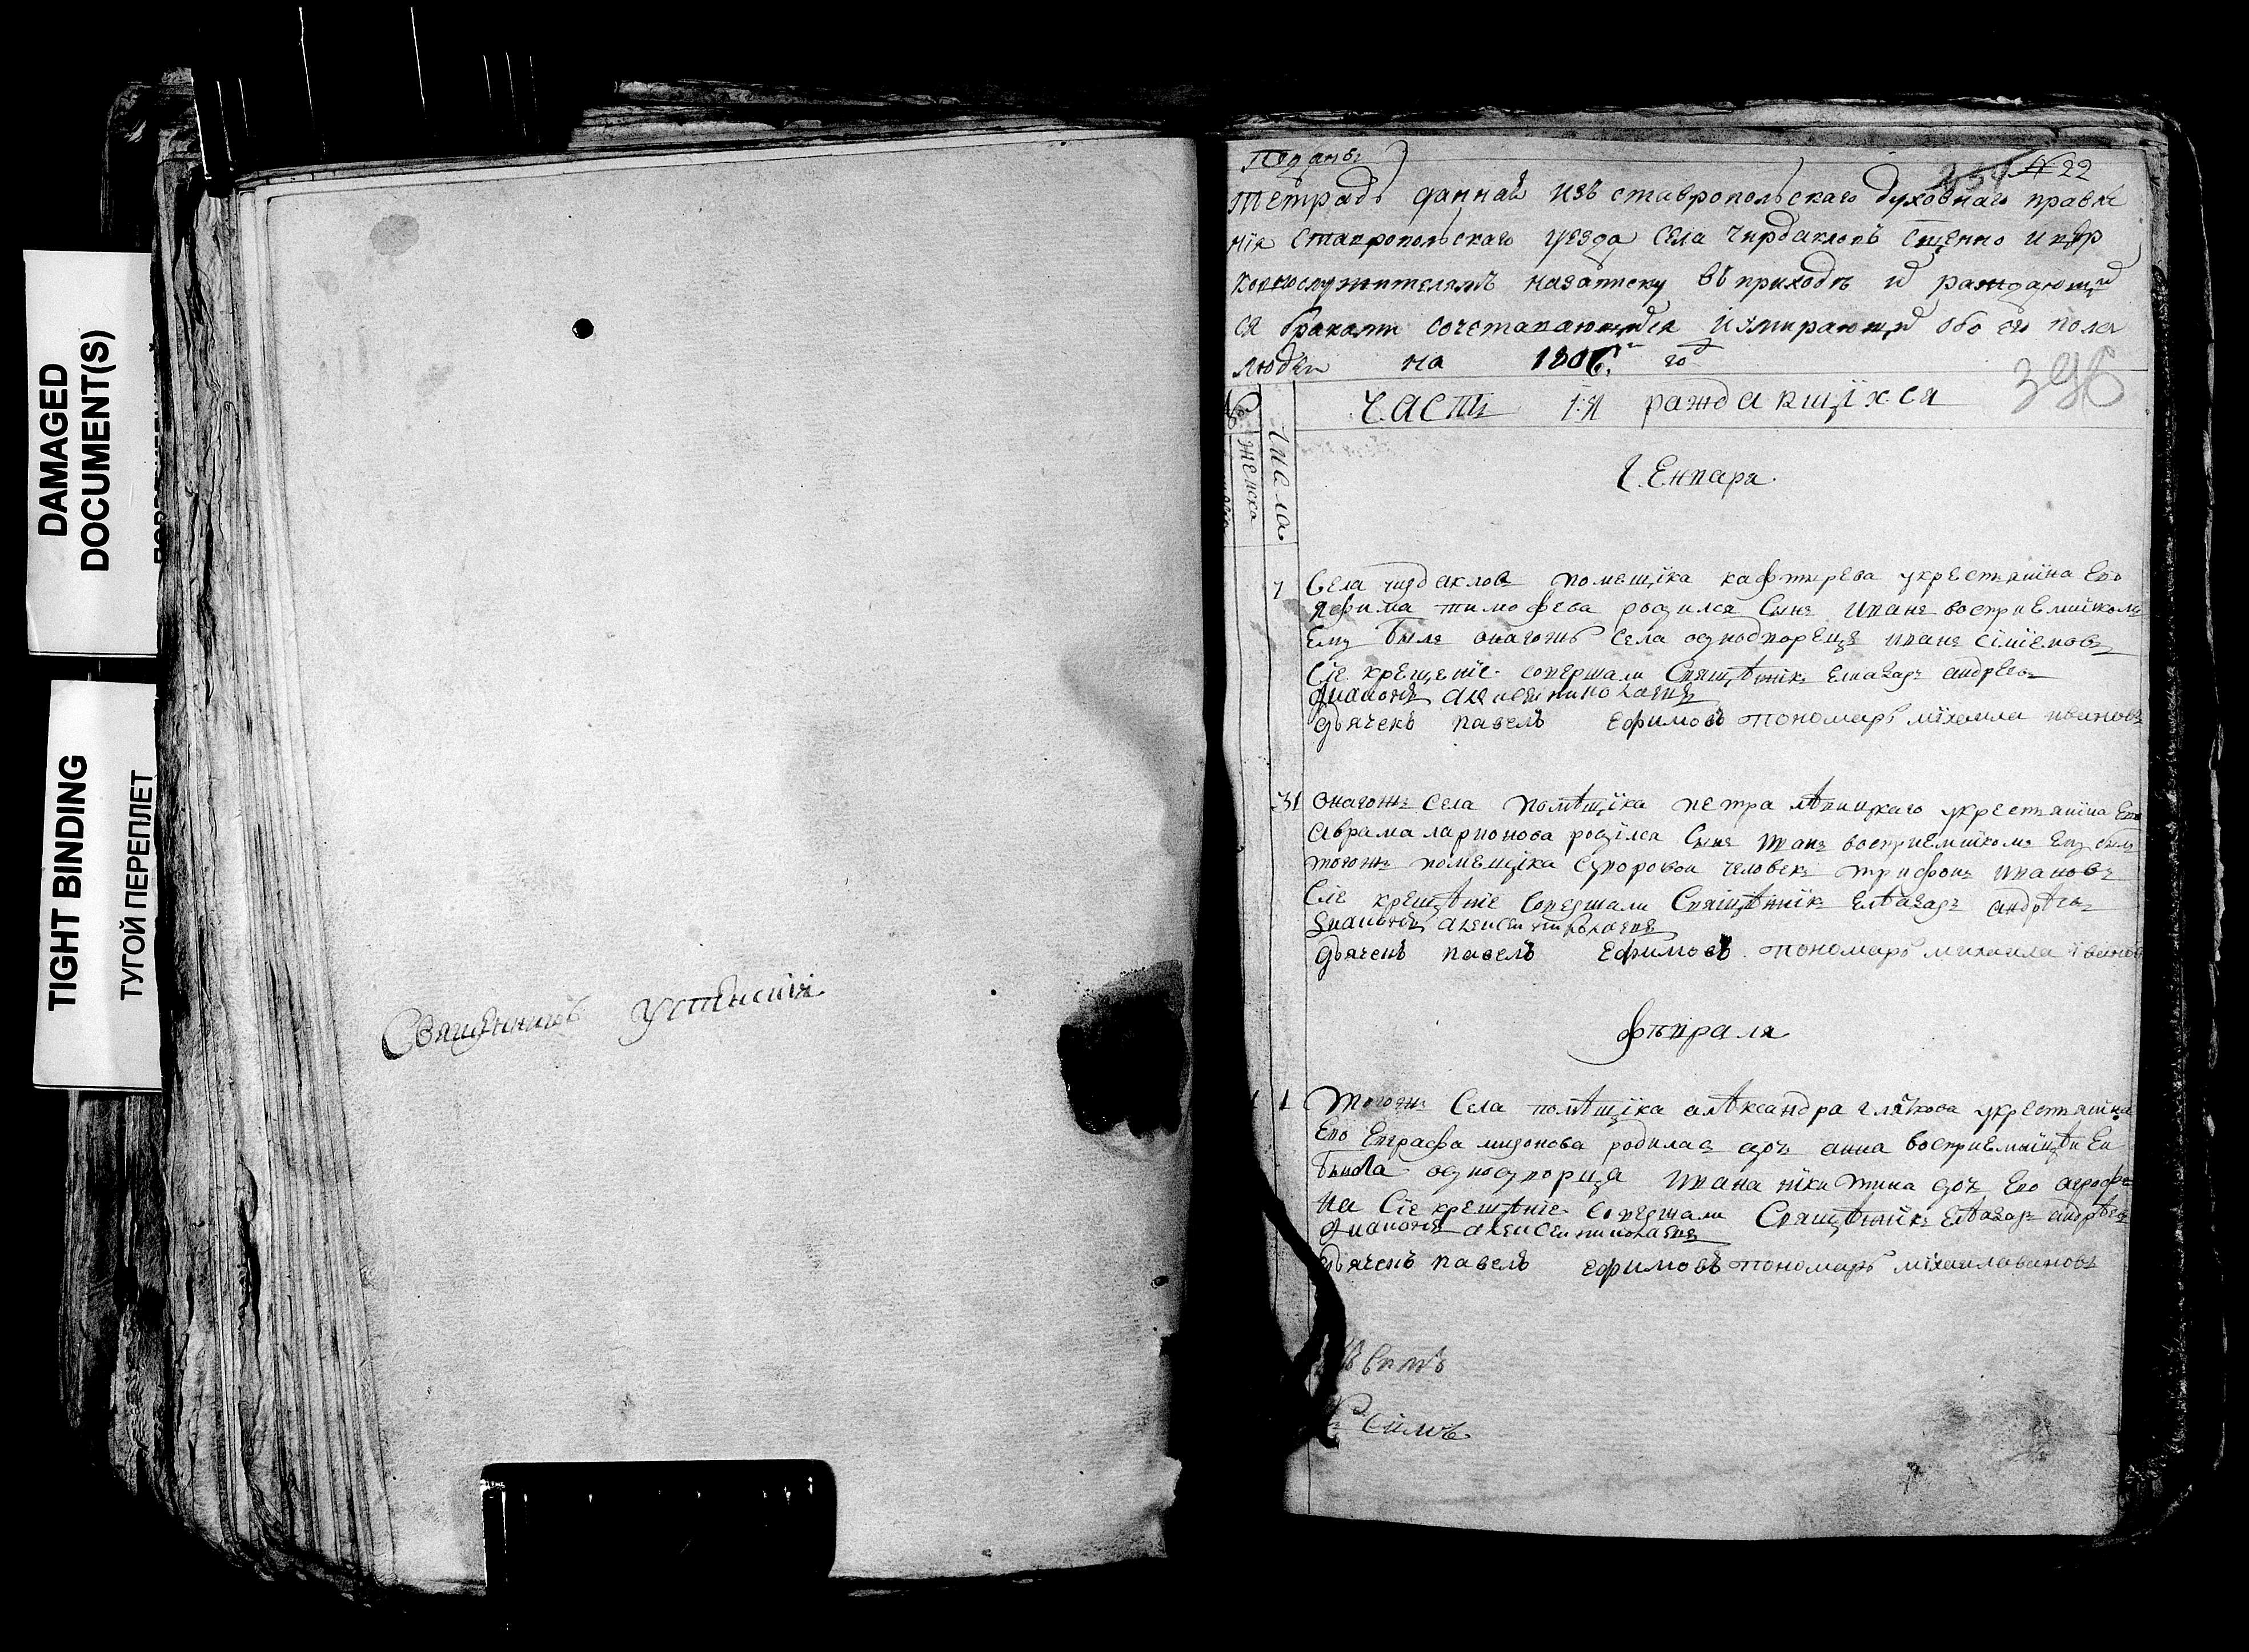 DAMAGED
DOCUMENT(S)
TIGHT BINDING
ТУГОЙ ПЕРЕПЛЕТ
Священникъ
Поданы
№ 22
тетрадь данная изъ ставропольскаго духовнаго правле
нія ставропольскаго уезда села чирдакловъ сщенно и цер
ковнослужителямъ на записку въ приходе их раждающих
ся браками сочетавающихся и умирающих обоего пола
людеи на 1806 го год
396
Часть 1:я раждающихся
числа
женска
Генваря
7 Села чирдаклов помещика кафтырева у крестьянина Ево
Яфима тимофеева родился Сынъ иванъ восприемником
Ему былъ онагожъ села однодворецъ иванъ
Сіе крещеніе совершали Священникъ Елиазаръ андреевъ
диаконъ алексеи николаевъ
дьячекъ павелъ ефимовъ пономарь михаила ивановъ
31 Онагожъ села помѣщика петра у крестьянина Ево
Аврама ларионова родился Сынъ иванъ восприемникомъ Ему былъ
тогожъ помещика дворовои человекъ трифонъ ивановъ
Сіе крещѣніе совершали Священникъ Елѣазаръ андрѣевъ
диаконъ алексеи николаевъ
дьячекъ павелъ ефимовъ пономарь михаила іванов
февраля
1 Тогожъ села помѣщика алѣксандра у крестьянина
Ево Евграфа миронова родилась дочь анна восприемницеи Еи
была однодворца ивана никитина дочь Ево агрофе
на Сіе крещѣніе совершали Священникъ Елѣазаръ андрѣевъ
диаконъ алексеи николаевъ
дьячекъ павелъ ефимовъ пономарь михаила ивановъ